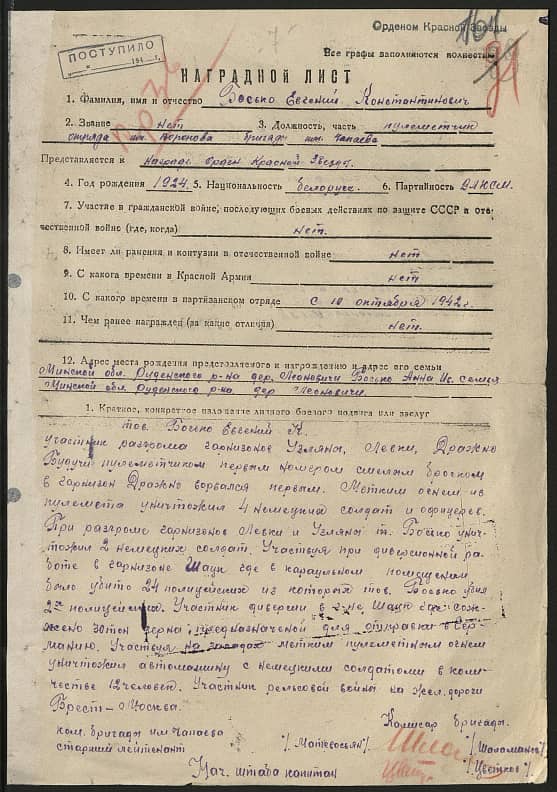 Орденом Красной Звезды
ПОСТУПИЛО
194 г.
Все графы заполняются полностью
НАГРАДНОЙ ЛИСТ
1. Фамилия, имя и отчество Босько Евгений Константинович
2. Звание нет 3. Должность, часть пулеметчик
отряда им. Воронова бригады им. Чапаева
Представляется к награде орден Красной Звезды.
4. Год рождения 1924 5. Национальность белорусс. 6. Партийность ВЛКСМ.
7. Участие в гражданской войне, последующих боевых действиях по защите СССР и оте-
чественной войне (где, когда) нет.
8. Имеет ли ранения и контузии в отечественной войне нет
9. С какого времени в Красной Армии нет
10. С какого времени в партизанском отряде с 10 октября 1942 г.
11. Чем ранее награжден (за какие отличия) нет.
12. Адрес места рождения представляемого к награждению и адрес его семьи
Минской обл. Руденского р-на дер. Леоновичи Босько Анна Ис. семья
Минской обл. Руденского р-на, дер Леоновичи.
1. Краткое, конкретное изложение личного боевого подвига или заслуг
тов. Босько Евгений К.
участник разгрома гарнизонов Узляны, Левки, Дражно
Будучи пулеметчиком первым номером смелым броском
в гарнизон Дражно ворвался первым. Метким огнем из
пулемета уничтожил 4 немецких солдат и офицеров.
При разгроме гарнизонов Левки и Узляны т. Босько унич-
тожил 2 немецких солдат. Участвуя при диверсионной ра-
боте в гарнизоне Шацк где в караульном помещении
было убито 24 полицейских из которых тов. Босько убил
2х полицейских. Участник диверсии в Шацк где сож-
жено 30 тон зерна, предназначеной для отправки в Гер-
манию. Участвуя на засадах метким пулеметным огнем
уничтожил автомашину с немецкими солдатами в коли-
честве 12 человек. Участник рельсовой войны на жел. дороги
Брест - Москва.
Комисар бригады
ком. бригады им Чапаева
старший лейтенант /Матевосьян/ /Шаломанов/
Нач. штаба капитан /Цветков/